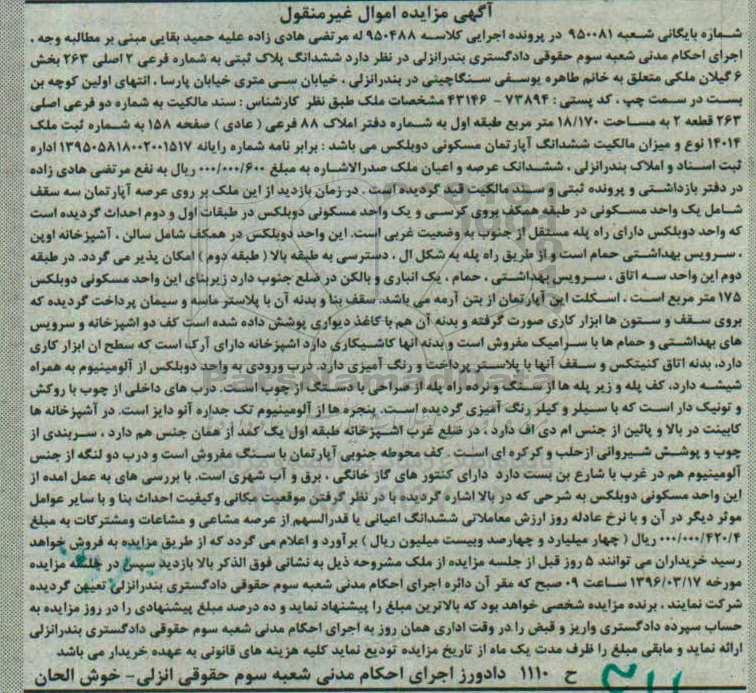 آگهی مزایده اموال غیرمنقول
شماره بایگانی شعبه ۹۵۰۰۸۱ در پرونده اجرایی کلاسه ۹۵۰۴۸۸ له مرتضی هادی زاده علیه حمید بقایی مبنی بر مطالبه وجه ،
اجرای احکام مدنی شعبه سوم حقوقی دادگستری بندرانزلی در نظر دارد ششدانگ پلاک ثبتی به شماره فرعی ۲ اصلی ۲۶۳ بخش
۶ گیلان ملکی متعلق به خانم طاهره یوسفی سنگاچینی در بندرانزلی ، خیابان سی متری خیابان پارسا ، انتهای اولین کوچه بن
بست در سمت چپ ، کد پستی : ۷۳۸۹۴ - ۴۳۱۴۶ مشخصات ملک طبق نظر کارشناس : سند مالکیت به شماره دو فرعی اصلی
۲۶۳ قطعه ۲ به مساحت ۱۸/۱۷۰ متر مربع طبقه اول به شماره دفتر املاک ۸۸ فرعی ( عادی ) صفحه ۱۵۸ به شماره ثبت ملک
۱۴۰۱۴ نوع و میزان مالکیت ششدانگ آپارتمان مسکونی دوبلکس می باشد : برابر نامه شماره رایانه ۱۳۹۵۰۵۸۱۸۰۰۲۰۰۱۵۱۷ اداره
ثبت اسناد و املاک بندرانزلی ، ششدانگ عرصه و اعیان ملک صدرالاشاره به مبلغ ۰۰۰/۰۰۰/۶۰۰ ریال به نفع مرتضی هادی زاده
در دفتر بازداشتی و پرونده ثبتی و سند مالکیت قید گردیده است . در زمان بازدید از این ملک بر روی عرصه آپارتمان سه سقف
شامل یک واحد مسکونی در طبقه همکف بروی کرسی و یک واحد مسکونی دوبلکس در طبقات اول و دوم احداث گردیده است
که واحد دوبلکس دارای راه پله مستقل از جنوب به وضعیت غربی است. این واحد دوبلکس در همکف شامل سالن ، آشپزخانه اوپن
، سرویس بهداشتی حمام است و از طریق راه پله به شکل ال ، دسترسی به طبقه بالا ( طبقه دوم ) امکان پذیر می گردد. در طبقه
دوم این واحد سه اتاق ، سرویس بهداشتی ، حمام ، یک انباری و بالکن در ضلع جنوب دارد زیربنای این واحد مسکونی دوبلکس
۱۷۵ متر مربع است . اسکلت این آپارتمان از بتن آرمه می باشد. سقف بنا و بدنه آن با پلاستر ماسه و سیمان پرداخت گردیده که
بروی سقف و ستون ها ابزار کاری صورت گرفته و بدنه آن هم با کاغذ دیواری پوشش داده شده است کف دو اشپزخانه و سرویس
های بهداشتی و حمام ها با سرامیک مفروش است و بدنه آنها کاشیکاری دارد اشپزخانه دارای آرک است که سطح ان ابزار کاری
دارد، بدنه اتاق کنیتکس و سقف آنها با پلاستر پرداخت و رنگ آمیزی دارد. درب ورودی به واحد دوبلکس از آلومینیوم به همراه
شیشه دارد، کف پله و زیر پله ها از سنگ و نرده راه پله از صراحی با دستگ از چوب است. درب های داخلی از چوب با روکش
و تونیک دار است که با سیلر و کیلر رنگ آمیزی گردیده است. پنجره ها از آلومینیوم تک جداره آنو دایز است. در آشپزخانه ها
کابینت در بالا و پائین از جنس ام دی اف دارد ، در ضلع غرب اشپزخانه طبقه اول یک کمد از همان جنس هم دارد ، سربندی از
چوب و پوشش شیروانی ازحلب و کرکره ای است . کف محوطه جنوبی آپارتمان با سنگ مفروش است و درب دو لنگه از جنس
آلومینیوم هم در غرب با شارع بن بست دارد دارای کنتور های گاز خانگی ، برق و آب شهری است. با بررسی های به عمل امده از
این واحد مسکونی دوبلکس به شرحی که در بالا اشاره گردیده با در نظر گرفتن موقعیت مکانی وکیفیت احداث بنا و با سایر عوامل
موثر دیگر در آن و با نرخ عادله روز ارزش معاملاتی ششدانگ اعیانی با قدرالسهم از عرصه مشاعی و مشاعات ومشترکات به مبلغ
۰۰۰/۰۰۰/۴۲۰/۴ ریال ( چهار میلیارد و چهارصد وبیست میلیون ریال ) برآورد و اعلام می گردد که از طریق مزایده به فروش خواهد
رسید خریداران می توانند ۵ روز قبل از جلسه مزایده از ملک مشروحه ذیل به نشانی فوق الذکر بالا بازدید سپس در جلسه مزایده
مورخه ۱۳۹۶/۰۳/۱۷ ساعت ۰۹ صبح که مقر آن دائره اجرای احکام مدنی شعبه سوم حقوقی دادگستری بندرانزلی تعیین گردیده
شرکت نمایند ، برنده مزایده شخصی خواهد بود که بالاترین مبلغ را پیشنهاد نماید و ده درصد مبلغ پیشنهادی را در روز مزایده به
حساب سپرده دادگستری واریز و قبض را در وقت اداری همان روز به اجرای احکام مدنی شعبه سوم حقوقی دادگستری بندرانزلی
ارائه نماید و مابقی مبلغ را ظرف مدت یک ماه از تاریخ مزایده تودیع نماید کلیه هزینه های قانونی به عهده خریدار می باشد
ح ۱۱۱۰ دادورز اجرای احکام مدنی شعبه سوم حقوقی انزلی - خوش الحان